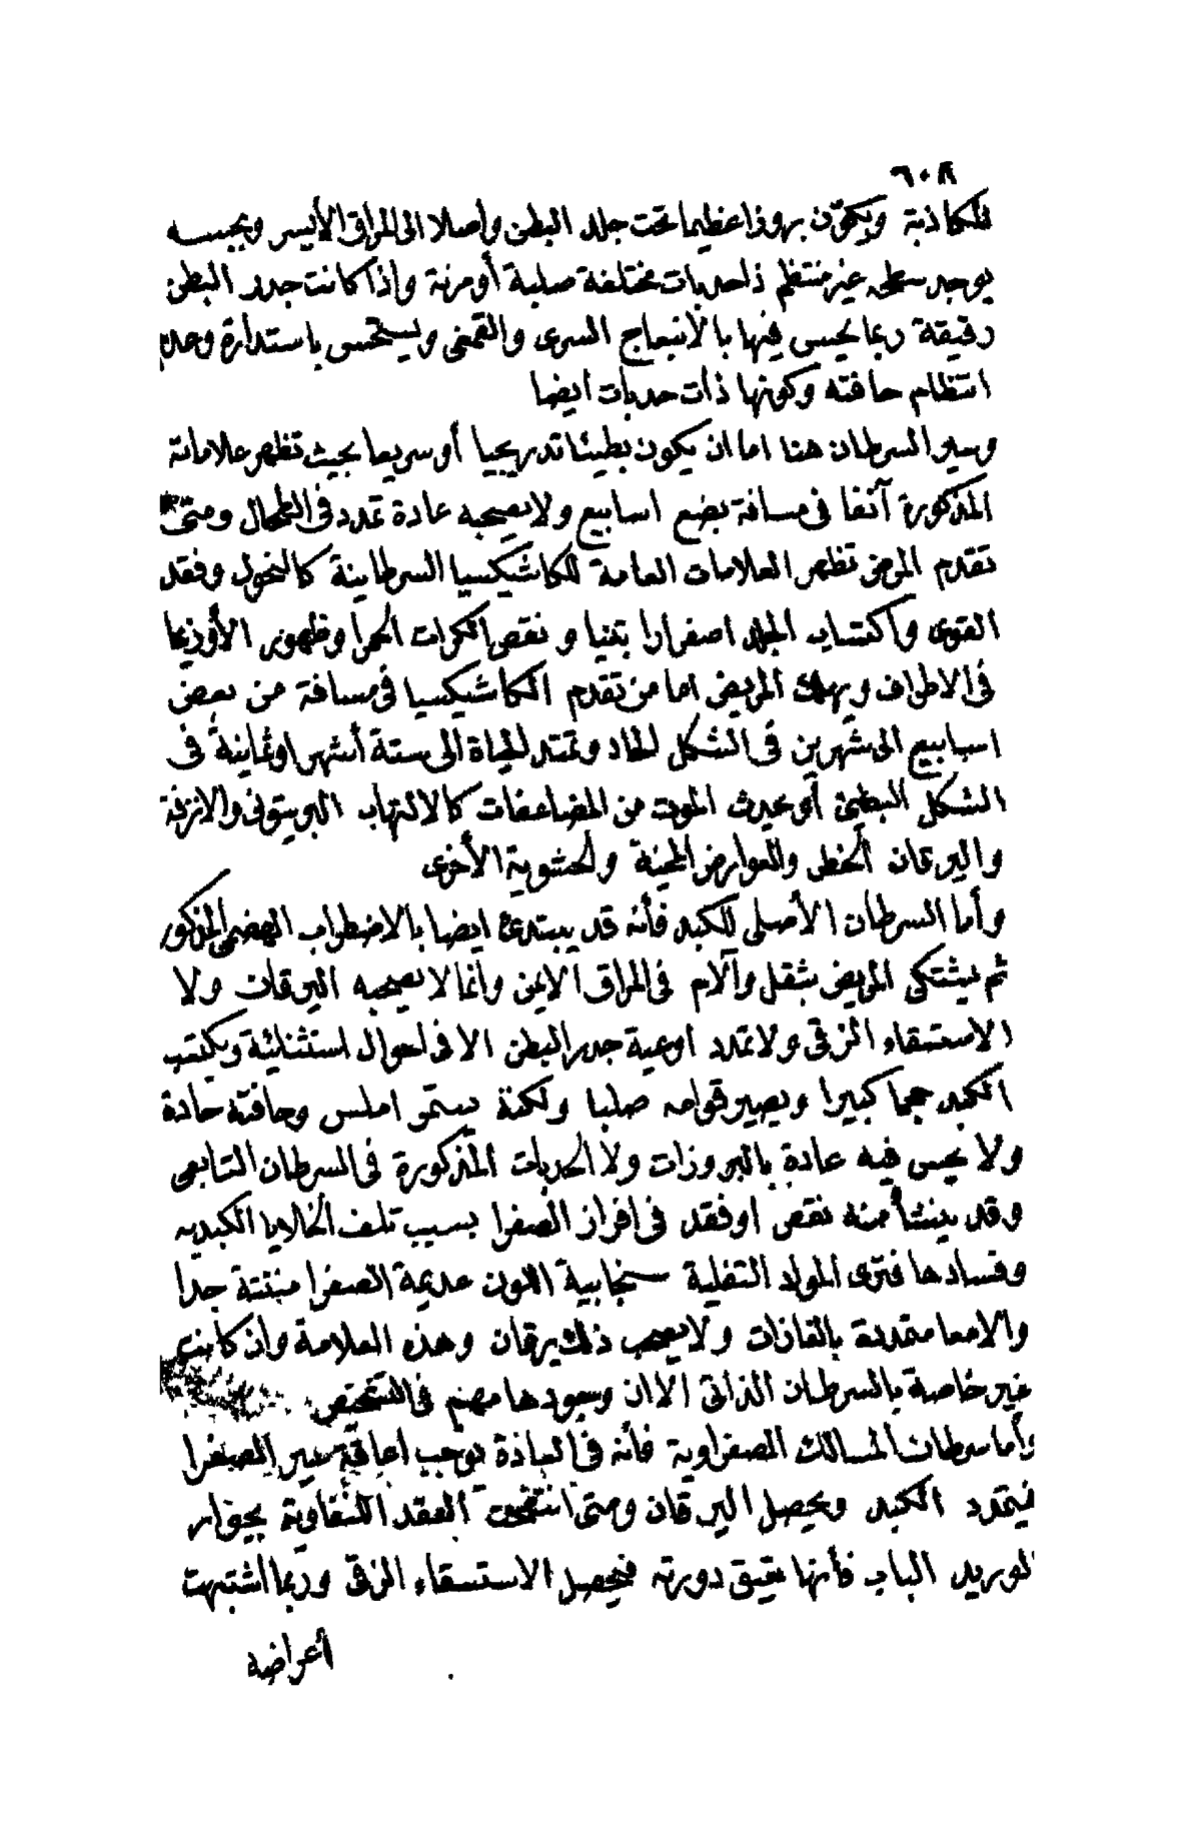 ٦٠٨
للكاذبة ويكوّن بروزا عظيما تحت جلد البطن واصلا الى المراق الأيسر وبجسه
يوجد سطحه غير منتظم ذا حدبات مختلفة صلبة أو مرنة واذا كانت جدد البطن
رقيقة ربما يحس فيها بالانبعاج السرى والقمعى ويستحس باستدارة وعدم
انتظام حافته وكونها ذات حدبات ايضا
وسير السرطان هنا اما ان يكون بطيئا تدريجيا أو سريعا بحيث تظهر علاماته
المذكورة آنفا فى مسافة بضع اسابيع ولا يصحبه عادة تمدد فى الطحال ومتى
تقدم المرض تظهر العلامات العامة للكاشيكسيا السرطاينة كالنحول وفقد
القوى واكتساب الجلد اصفرارا تبنيا ونقص الكرات الحمرا وظهور الأوذيما
فى الاطراف ويهلك المريض اما من تقدم الكاشيكسيا فى مسافة من بعض
اسابيع الى شهرين فى الشكل الحاد وتمتد الحياة الى ستة أشهر او ثمانية فى
الشكل البطئ أو يحدث الموت من المضاعفات كالالتهاب البريتونى والانزفة
واليرقان الخطر والعوارض المخية والحشوية الأخرى
وأما السرطان الأصلى للكبد فأنه قد يبتدئ ايضا بالاضطراب الهضمى المذكور
ثم يشتكى المريض بثقل وآلام فى المراق الايمن وانما لا يصحبه اليرقان ولا
الاستسقاء الزقى ولا تمدد اوعية جدر البطن الا فى احوال استثنائية ويكتسب
الكبد حجما كبيرا ويصير قوامه صلبا ولكنه يستمر املس وحافته حادة
ولا يحس فيه عادة بالبروزات ولا الحدبات المذكورة فى السرطان التابعى
وقد ينشأ منه نقص او فقد فى افراز الصفرا بسبب تلف الخلايا الكبديه
وفسادها فترى المواد الثفلية سنجابية اللون عديمة الصفرا منتنة جدا
والامعا متمددة بالغازات ولا يصحب ذلك يرقان وهذه العلامة وان كانت
غير خاصة بالسرطان الذاتى الا ان وجودها مهم فى التشخيص
وأما سرطان المسالك الصفراوية فأنه فى العادة يوجب اعاقة سير الصفرا
فيتمدد الكبد ويحصل اليرقان ومتى انتفخت العقد اللنفاوية بجوار
الوريد الباب فأنها تعيق دورته فيحصل الاستسقاء الزقى وربما اشتبهت
أعراضه